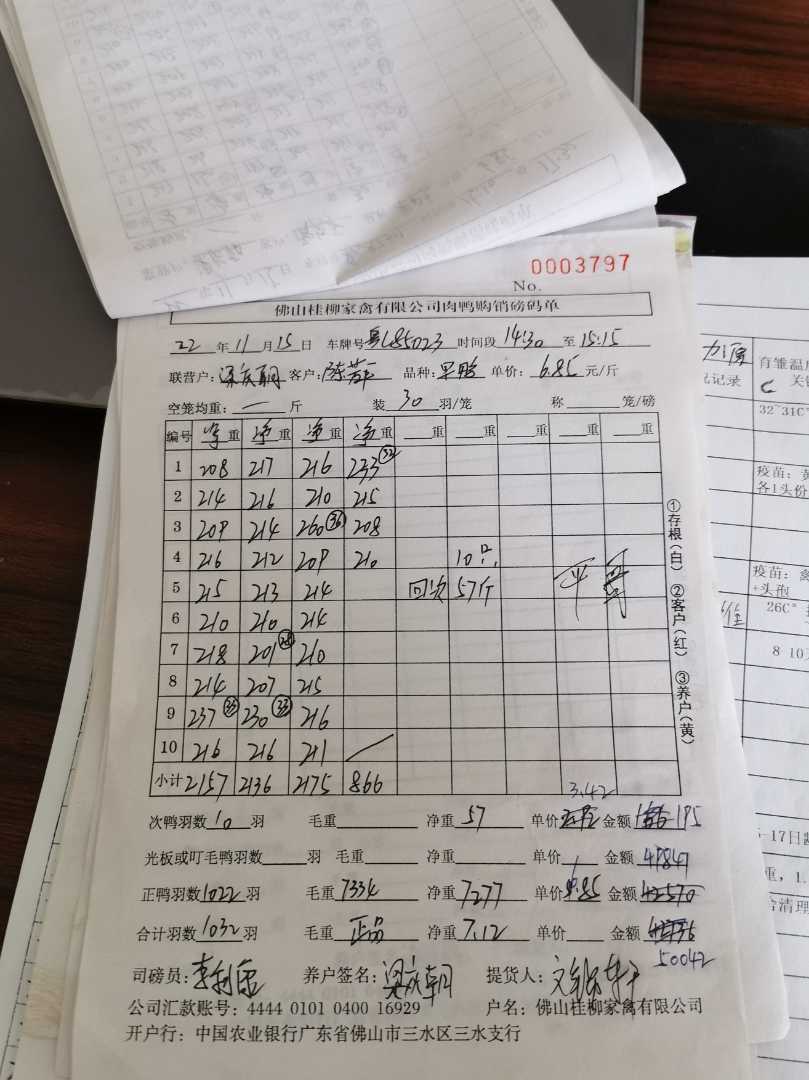 0003797
No.
佛山桂柳家禽有限公司肉鸭购销磅码单
22年11月15日 车牌号粤L85023 时间段14:30至15:15
联营户: 客户: 品种: 单价:6.85元/斤
空笼均重:一斤 装30羽/笼 称 笼/磅
编号 净重 净重 净重 净重 重 重 重 重
1 208 217 216 233
2 214 216 210 215
3 209 214 260 36 208
4 216 212 209 210 10只
5 215 213 214 回次 57斤
6 210 210 214
7 218 201 28 210
8 214 207 215
9 237 33 230 33 216
10 216 216 211
小计 2157 2136 2175 866
3.42
次鸭羽数10羽 毛重 净重57 单价 金额195
光板或叮毛鸭羽数 羽 毛重 净重 单价 金额49847
正鸭羽数1022羽 毛重7334 净重7277 单价6.85 金额42570
合计羽数1032羽 毛重正品 净重7.12 单价 金额
50042
司磅员: 养户签名: 提货人:
公司汇款账号: 4444 0101 0400 16929 户名: 佛山桂柳家禽有限公司
开户行: 中国农业银行广东省佛山市三水区三水支行
①存根(白) ②客户(红) ③养户(黄)
记录
育雏温度
关
32~31C°
疫苗:
各1头份
疫苗:
+头孢
26C°
8-10
-17日
重, 1.
清理